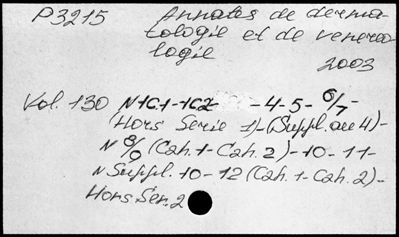 P3215 Annales de derma-
tologie et de venero-
logie
2003
Vol. 130 N1C1-1C2 -4-5-6/7-
(Hors Serie 1)-(Suppl. au 4)-
N 8/9 (Cah. 1-Cah. 2)-10-11-
N Suppl. 10-12 (Cah. 1-Cah. 2)-
Hors Ser. 2